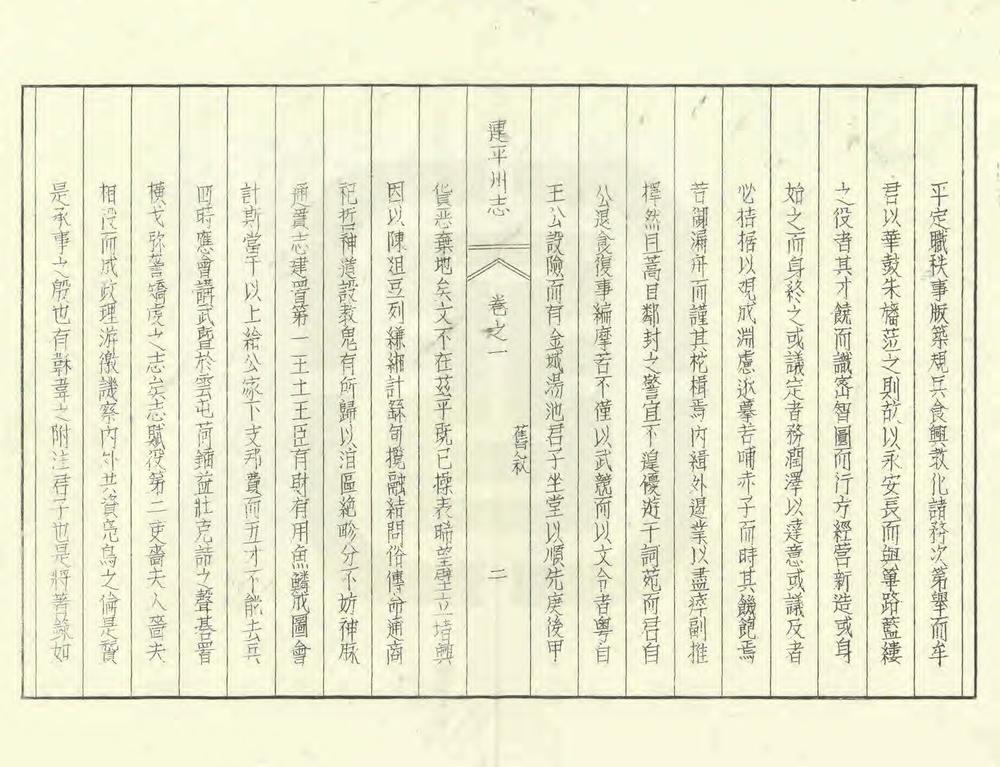 平定職秩事版築規兵食興教化諸務次第舉而牟
君以華鼓朱旛蒞之則故以永安長而與篳路藍縷
之役者其才饒而識密智圓而行方經營新造或身
始之而身終之或議定者務潤澤以達意或議反者
必拮据以觀成淵慮逖摹若哺赤子而時其饑飽焉
若御漏舟而謹其柁楫焉內緝外遏業以盡瘁副推
擇然且蒿目鄰封之警宜不遑優遊于詞苑而君自
公退食復事編摩若不僅以武競而以文令者粵自
王公設險而有金城湯池君子坐堂以順先庚後甲
舊敘
建平州志
卷之一
二
貨惡棄地矣文不在茲乎既已操表晞望壁立堵興
因以陳俎豆列縑緗計錄句攬融結問俗傳命通商
祀哲神道設教鬼有所歸以洎區絕畛分不妨神脈
通實志建置第一王土王臣有財有用魚鱗成圖會
計斯當于以上給公家下支邦費而五才不能去兵
四時應會講武暨於雲屯荷鍤益壯克詰之聲碁置
橫戈弥警矯虔之志矣志賦役第二吏嗇夫人嗇夫
相沿而成政理游徼譏察內外共資鳧鳥之倫是贊
是承事之殷也有韎韋之附注君子也是將著錄如